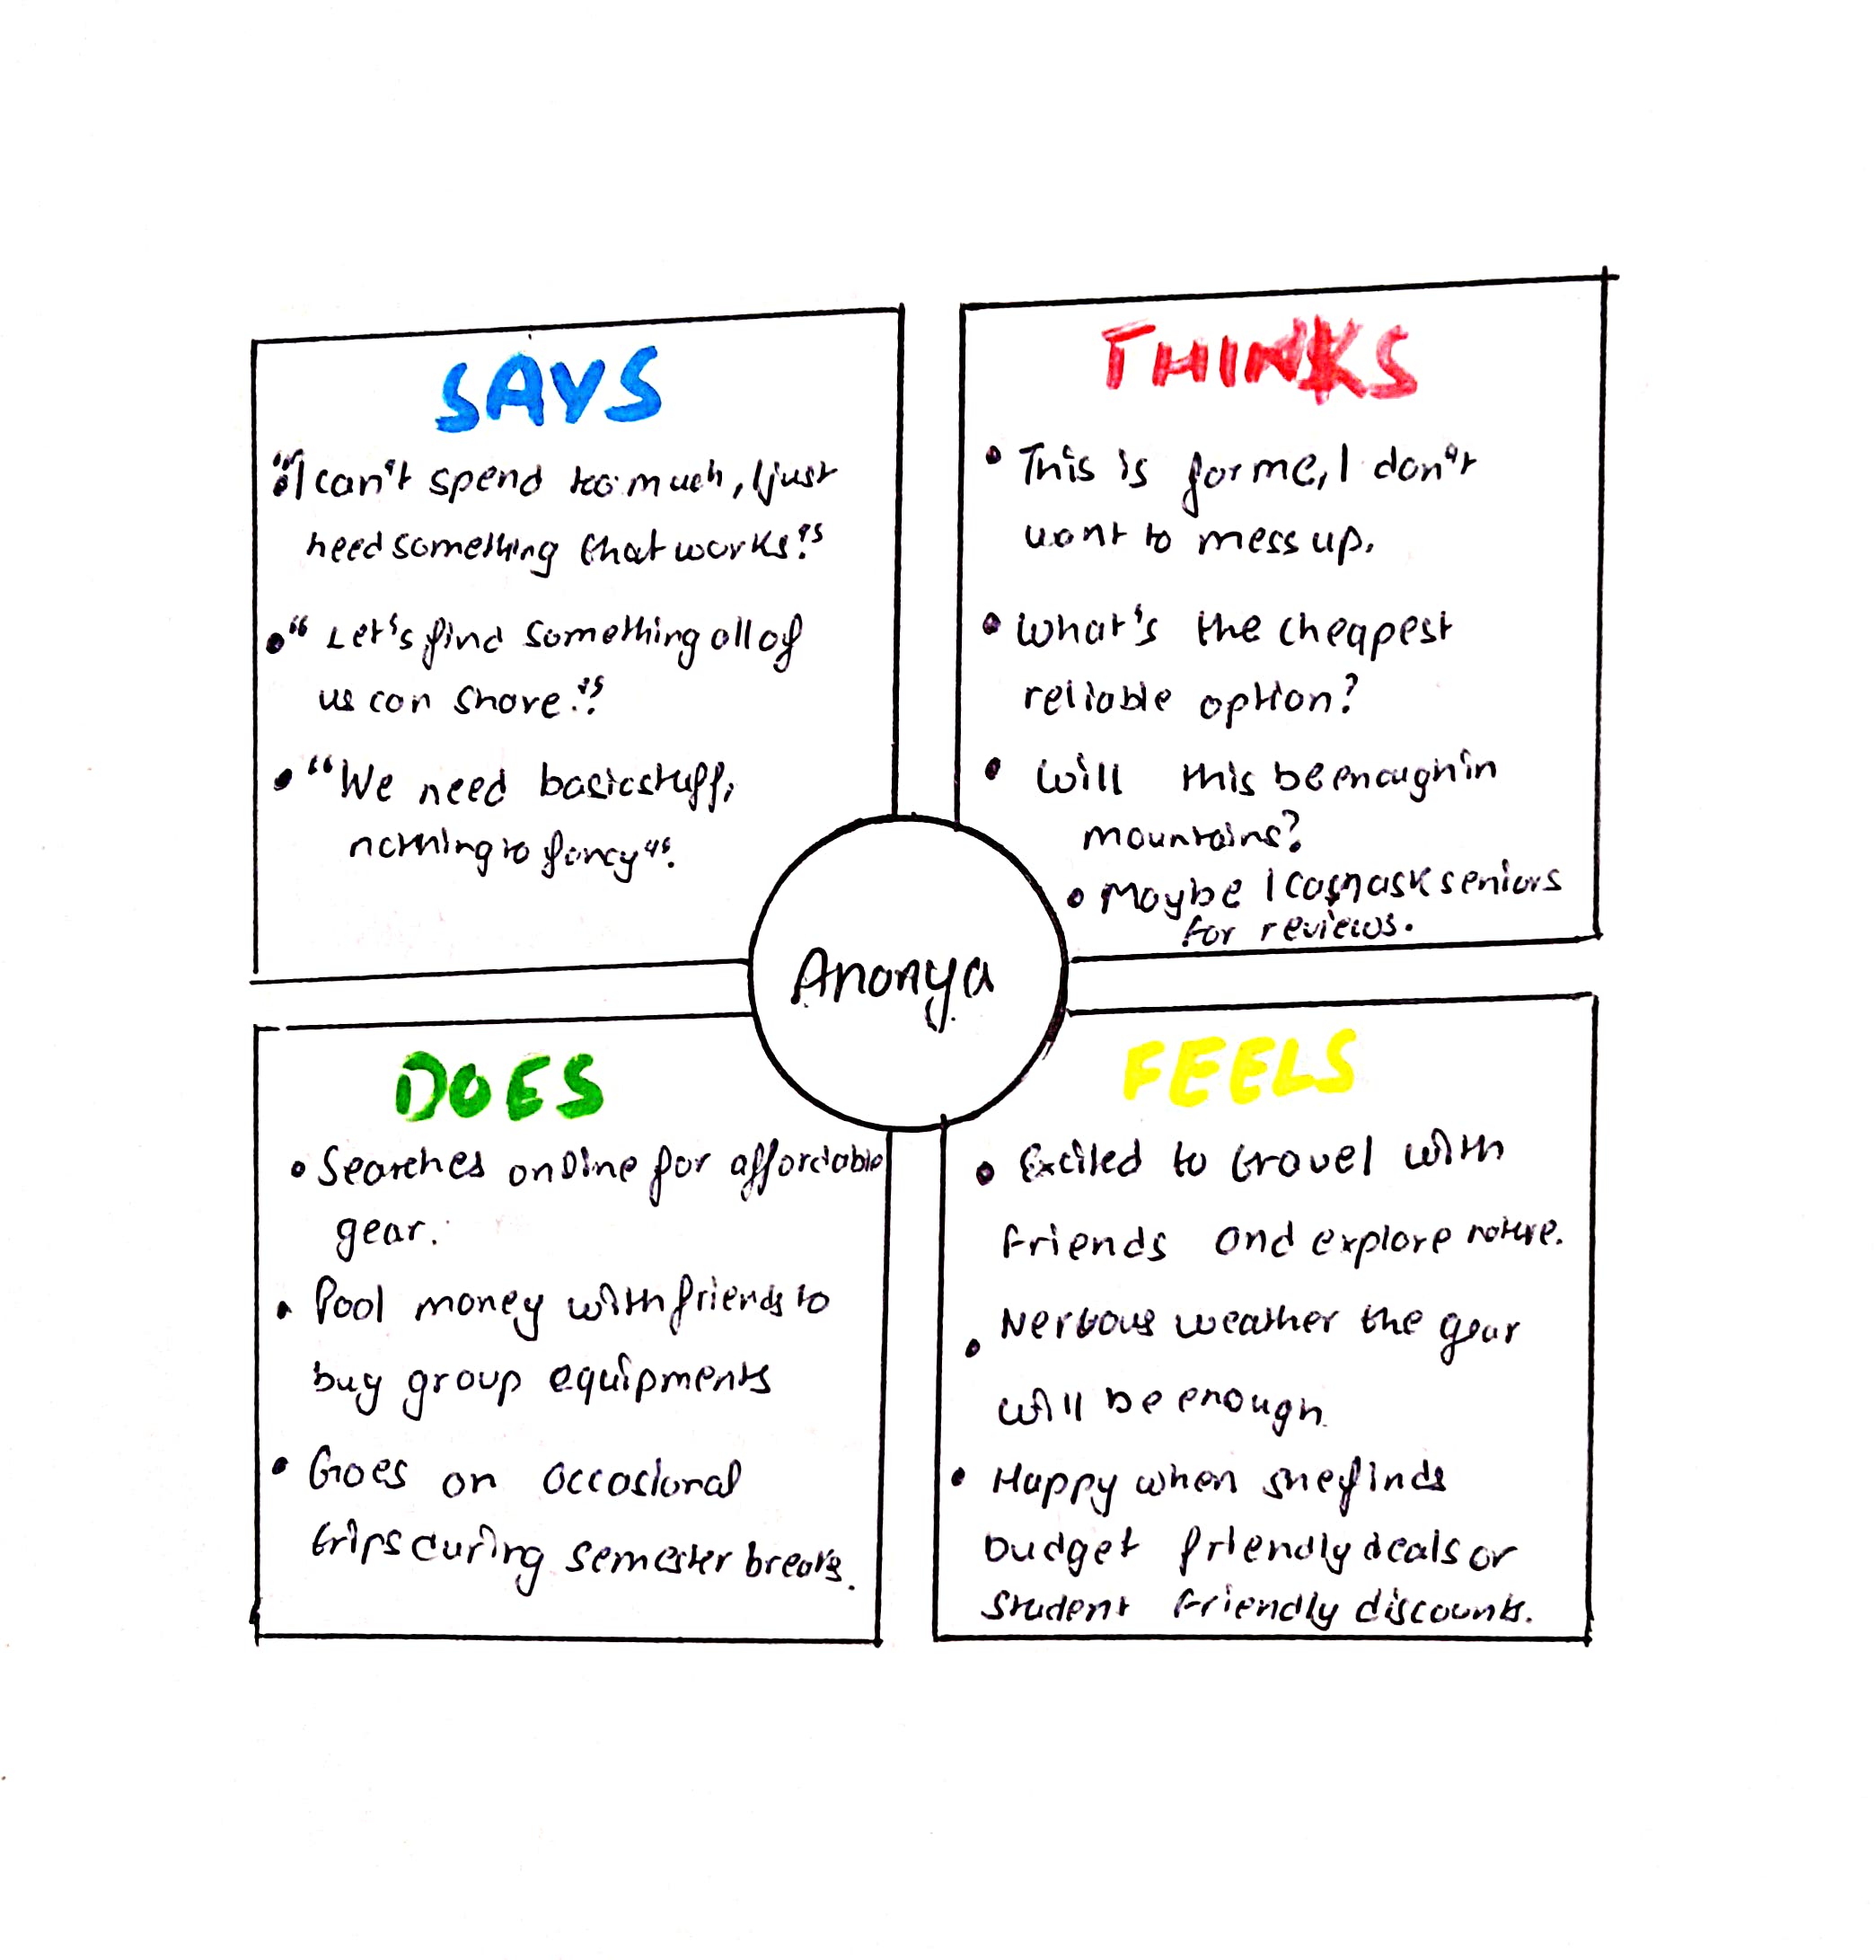 SAYS
"I can't spend too much, I just
need something that works."
"Let's find something all of
us can share."
"We need basic stuff,
nothing to fancy".
THINKS
This is for me, I don't
want to mess up.
What's the cheapest
reliable option?
Will this be enough in
mountains?
Maybe I can ask seniors
for reviews.
Ananya
DOES
Searches online for affordable
gear.
Pool money with friends to
buy group equipments
Goes on occasional
trips during semester breaks.
FEELS
Excited to travel with
friends and explore nature.
Nervous weather the gear
will be enough.
Happy when she finds
budget friendly deals or
student friendly discounts.